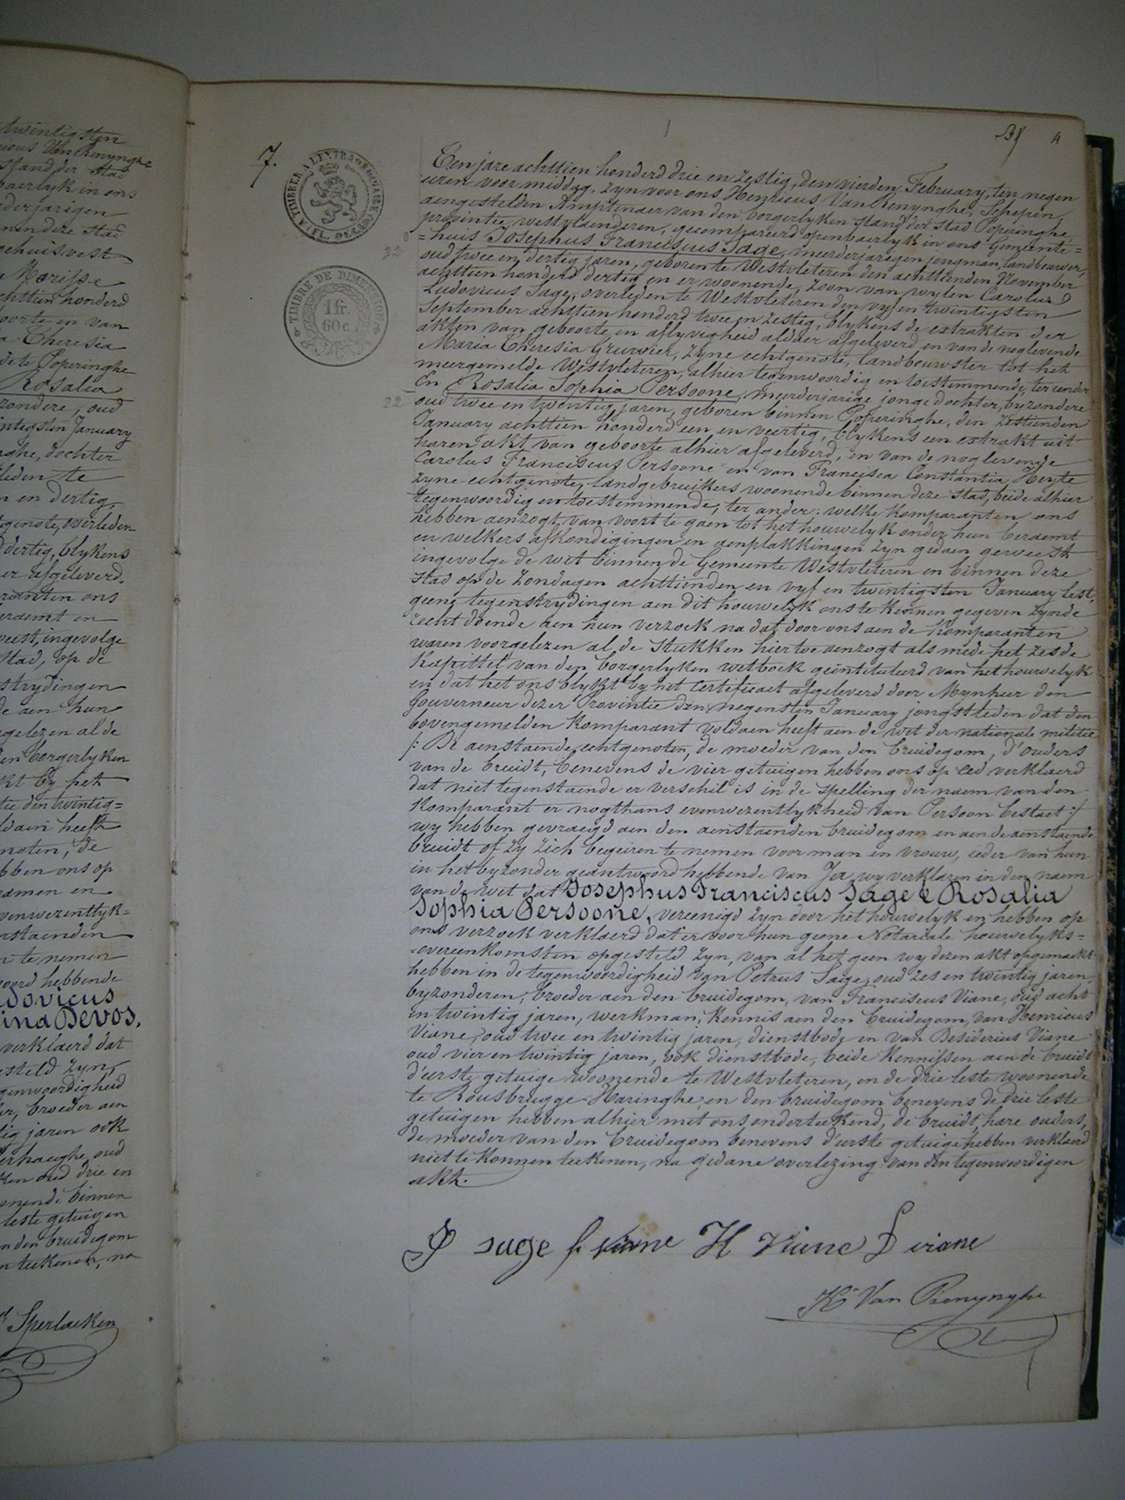 7.
TIMBRE DE DIMENSION
1 fr.
60 c.
4
Een jare achttien honderd drie en zestig, den vierden February, ten negen
uren voor middag, zyn voor ons Henricus Van Renynghe, Schepen,
aengestelden Amptenaer van den borgerlyken stand der stad Poperinghe,
provintie westvlaenderen, gecompareerd openbaerlyk in ons Gemeente=
=huis Josephus Franciscus Sage, meerderjaregen jongman, landbouwer,
32
oud twee en dertig jaren, geboren te Westvleteren den achttienden November
achttien honderd dertig en er woonende, zoon van wylen Carolus
Ludovicus Sage, overleden te Westvleteren den vyf en twintigsten
September achttien honderd twee en zestig, blykens de extrakten der
akten van geboorte en aflyvigheid aldaer afgeleverd en van de noglevende
Maria Theresia Gruwier, zyne echtgenote, landbouwster tot het
meergemelde Westvleteren, alhier tegenwoordig en toestemmende, ter eender
En Rosalia Sophia Persoone, meerderjarige jonge dochter, byzondere
22
oud twee en twintig jaren, geboren binnen Poperinghe, den zestienden
January achttien honderd een en veertig, blykens een extrakt uit
haren akt van geboorte alhier afgeleverd, en van de noglevende
Carolus Franciscus Persoone en van Francisca Constantia Heyte
zyne echtgenote, landgebruikers woonende binnen deze stad, beide alhier
tegenwoordig en toestemmende, ter ander: welke komparanten ons
hebben aenzogt van voort te gaen tot het houwelyk onder hun beraemt
en welkers afkondigingen en aenplakkingen zyn gedaen geweest
ingevolge de wet binnen de Gemeente Westvleteren en binnen deze
stad op de zondagen achttienden en vyf en twintigsten January lest,
geene tegenstrydingen aen dit houwelyk ons te kennen gegeven zynde
recht doende aen hun verzoek na dat door ons aen de komparanten
waren voorgelezen al de stukken hiertoe aenzogt als mede het zesde
kapittel van den borgerlyken wetboek geintituleerd van het houwelyk
en dat het ons blykt by het certificaet afgeleverd door Mynheer den
Gouverneur dezer Provintie den negensten January jongstleden dat den
bovengemelden komparant voldaen heeft aen de wet der nationale militie
/: De aenstaende echtgenoten, de moeder van den bruidegom, d'ouders
van de bruidt, benevens de vier getuigen hebben ons op eed verklaerd
dat niet tegenstaende er verschil is in de spelling der naem van den
komparant er nogthans evenwezentlykheid van Persoon bestaet :/
wy hebben gevraegd aen den aenstaenden bruidegom en aen de aenstaende
bruidt of zy zich begeiren te nemen voor man en vrouw, ieder van hun
in het byzonder geantwoord hebbende van Ja, wy verklaren in den naem
van de wet dat Josephus Franciscus Sage & Rosalia
Sophia Persoone, vereenigd zyn door het houwelyk en hebben op
ons verzoek verklaerd dat er voor hun geene Notariale houwelyks=
=overeenkomsten opgesteld zyn, van al het geen wy dezen akt opgemaekt
hebben in de tegenwoordigheid van Petrus Sage, oud zes en twintig jaren,
byzonderen, broeder aen den bruidegom, van Franciscus Viane, oud acht
en twintig jaren, werkman, kennis aen den bruidegom, van Henricus
Viane, oud twee en twintig jaren, dienstbode en van Desiderius Viane
oud vier en twintig jaren, ook dienstbode, beide kennissen aen de bruidt
d'eerste getuige woonende te Westvleteren, en de drie leste woonende
te Rousbrugge-Haringhe, en den bruidegom benevens de drie leste
getuigen hebben alhier met ons onderteekend, de bruidt, hare ouders,
de moeder van den bruidegom benevens d'erste getuige hebben verklaerd
niet te konnen teekenen, na gedane overlezing van den tegenwoordigen
akt.
J sage f. viane H Viane D viane
Hri Van Renynghe
twintigsten
stand der stad
baerlyk in ons
derjarigen
gehuisvest
chttien honderd
oorte en van
a Theresia
de te Poperinghe
Rosalia
zondere, oud
ntigsten January
nghe, dochter
leden te
n en dertig
tgenote, overleden
dertig, blykens
er afgeleverd.
ranten ons
eraemt en
weest, ingevolge
stad, op de
strydingen
de aen hun
rgelezen al de
en borgerlyken
kt by het
tie den twintig=
ldaen heeft
noten, de
bben ons op
namen en
venwezentlyk=
nstaenden
n te nemen
woord hebbende
dovicus
ina Devos.
verklaerd dat
esteld zyn,
genwoordigheid
er, broeder aen
tig jaren ook
erhaeghe, oud
ken oud drie en
onende binnen
leste getuigen
n den bruidegom
n teekenen, na
Sperlaeken